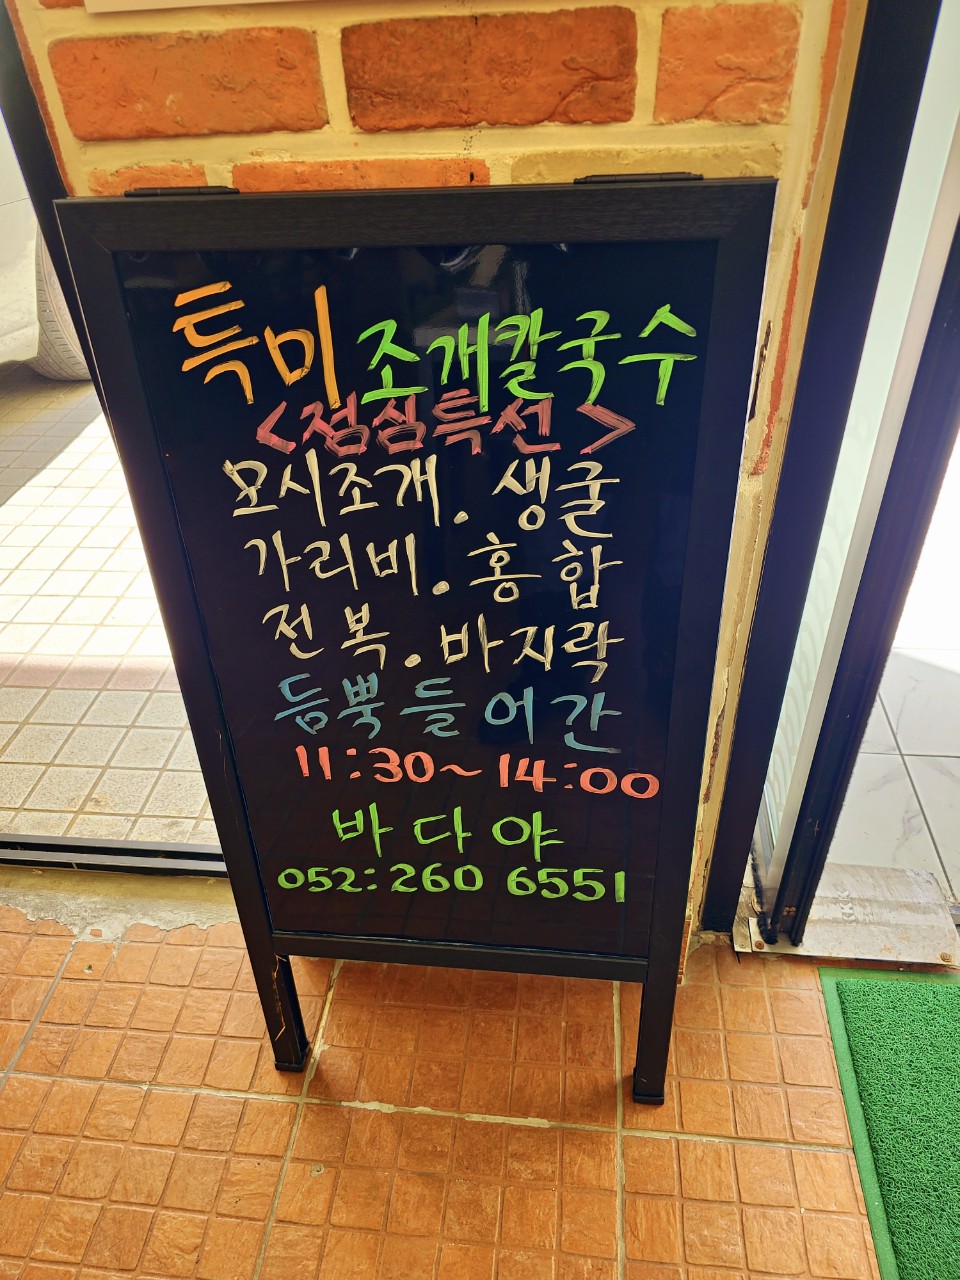 특미 조개칼국수
<점심특선>
모시조개. 생굴
가리비. 홍합
전복. 바지락
듬뿍 들어간
11:30~14:00
바다야
052:260 6551